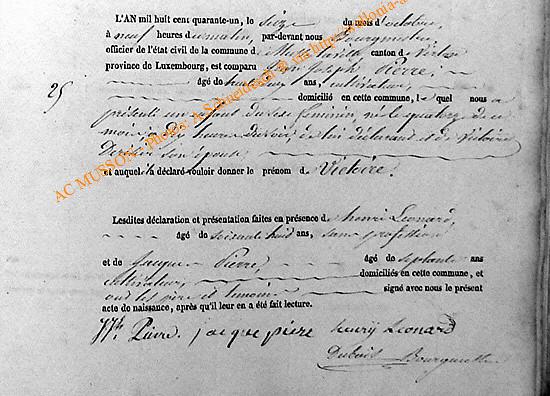 L'AN mil huit cent quarante-un, le seize du mois d'octobre,
à neuf heures du matin, par-devant nous Bourgmestre
officier de l'état civil de la commune d canton d
province de Luxembourg, est comparu Joseph Pierre,
âgé de ans, cultivateur,
25
domicilié en cette commune, lequel nous a
présenté un enfant du sexe féminin, né le quatorze de ce
mois à heures du soir, de lui déclarant et de Victoire
son épouse
et auquel il a déclaré vouloir donner le prénom d Victoire.
Lesdites déclaration et présentation faites en présence d henri Leonard,
âgé de soixante huit ans, sans profession
et de Jacque Pierre, âgé de septante ans
cultivateur, domiciliés en cette commune, et
ont les père et témoins signé avec nous le présent
acte de naissance, après qu'il leur en a été fait lecture.
Pierre jacque piere henry Leonard
Bourgmestre
AC MUSSON - Photos: A.Schneider